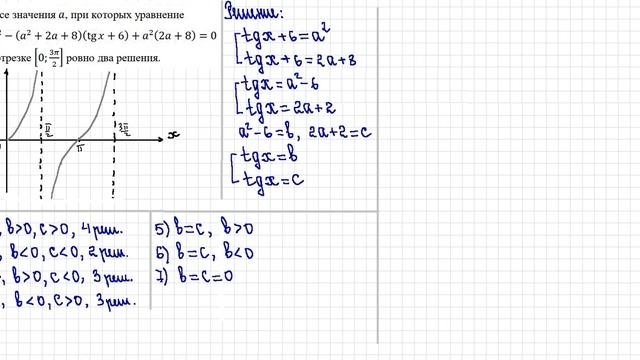 се значения a, при которых уравнение
− (a² + 2a + 8)(tg x + 6) + a²(2a + 8) = 0
отрезке [0; 3π/2] ровно два решения.
π/2
3π/2
π
x
Решение:
tgx+6=a²
tgx+6=2a+8
tgx=a²-6
tgx=2a+2
a²-6=b, 2a+2=c
tgx=b
tgx=c
, b>0, c>0, 4 реш.
, b<0, c<0, 2 реш.
, b>0, c<0, 3 реш.
, b<0, c>0, 3 реш.
5) b=c, b>0
6) b=c, b<0
7) b=c=0